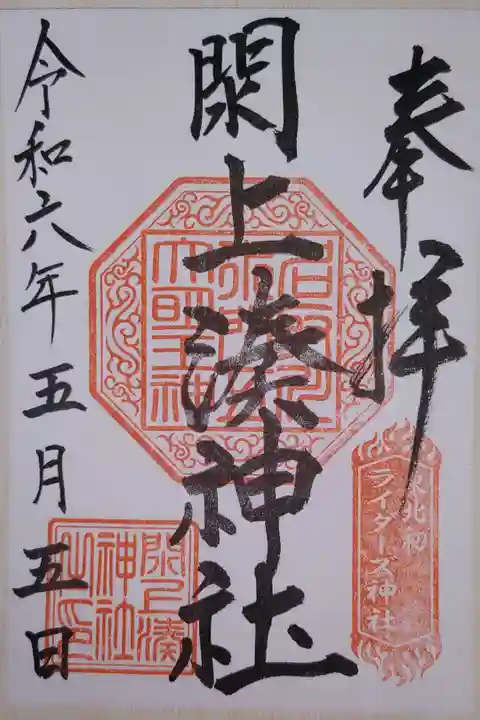 奉拝
東北初
ライダーズ神社
閖上湊神社
閖上湊
神社
之印
令和六年五月五日